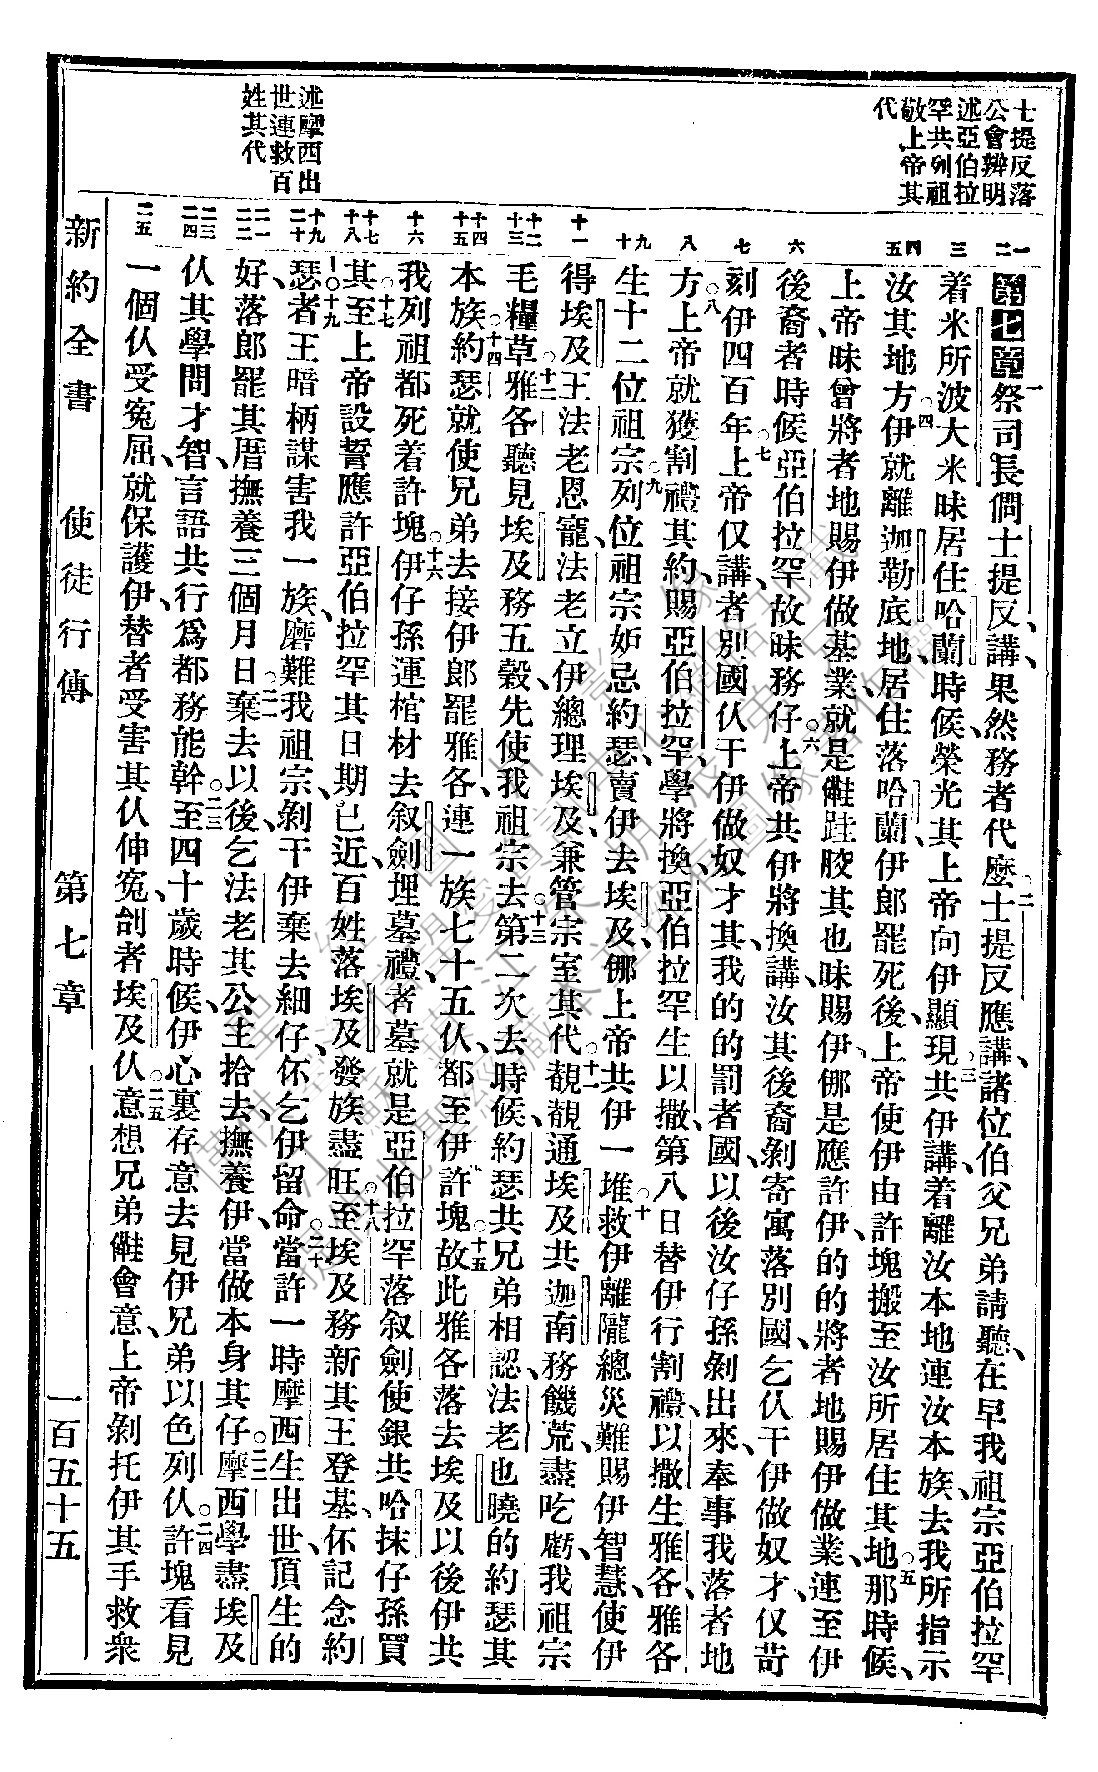 士提反落
公會辨明
述亞伯拉
罕共列祖
敬上帝其
代
述摩西出
世連救百
姓其代
一
二
三
四
五
六
七
八
九
十
十一
十二
十三
十四
十五
十六
十七
十八
十九
二十
二一
二二
二三
二四
二五
第七章一祭司長僩士提反講、果然務者代麼。二士提反應講、諸位伯父兄弟請聽、在早我祖宗亞伯拉罕
着米所波大米昧居住哈蘭時候、榮光其上帝向伊顯現。三共伊講、着離汝本地連汝本族、去我所指示
汝其地方。四伊就離迦勒底地、居住落哈蘭、伊郎罷死後、上帝使伊由許塊搬至汝所居住其地。五那時候、
上帝昧曾將者地賜伊做基業、就是𣍐跬骹其也昧賜伊、㑚是應許伊的的將者地賜伊做業、連至伊
後裔、者時候亞伯拉罕故昧務仔。六上帝共伊將換講、汝其後裔、剝寄寓落別國、乞伩干伊做奴才、仅苛
刻伊四百年。七上帝仅講、者別國伩干伊做奴才其、我的的罰者國、以後汝仔孫剝出來、奉事我落者地
方。八上帝就獲割禮其約、賜亞伯拉罕、學將換、亞伯拉罕生以撒、第八日替伊行割禮、以撒生雅各、雅各
生十二位祖宗。九列位祖宗妬忌約瑟、賣伊去埃及、㑚上帝共伊一堆。十救伊離隴總災難、賜伊智慧、使伊
得埃及王法老恩寵、法老立伊總理埃及、兼管宗室其代。十一覩覩通埃及共迦南務饑荒、盡吃虧、我祖宗
毛糧草。十二雅各聽見埃及務五穀、先使我祖宗去。十三第二次去時候、約瑟共兄弟相認、法老也曉的約瑟其
本族。十四約瑟就使兄弟去接伊郎罷雅各、連一族七十五伩、都至伊許塊。十五故此雅各落去埃及、以後伊共
我列祖都死着許塊。十六伊仔孫運棺材去叙劍埋墓禮、者墓就是亞伯拉罕落叙劍使銀共哈抹仔孫買
其。十七至上帝設誓應許亞伯拉罕其日期已近、百姓落埃及發族盡旺。十八至埃及務新其王登基、伓記念約
瑟。十九者王暗柄謀害我一族、磨難我祖宗、剝干伊棄去細仔、伓乞伊留命。二十當許一時、摩西生出世、頂生的
好、落郎罷其厝撫養三個月日。二一棄去以後、乞法老其公主拾去、撫養伊、當做本身其仔。二二摩西學盡埃及
伩其學問才智、言語共行爲都務能幹。二三至四十歲時候、伊心裏存意去見伊兄弟以色列伩。二四許塊看見
一個伩受寃屈、就保護伊、替者受害其伩伸寃、刣者埃及伩。二五意想兄弟𣍐會意、上帝剝托伊其手救衆
新約全書　使徒行傳　第七章　一百五十五